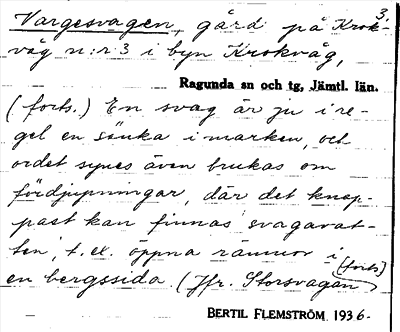 3.
Vargesvagen, gård på Krok-
våg n:r 3 i byn Krokvåg,
Ragunda sn och tg, Jämtl. län.
(forts.) En svag är ju i re-
gel en sänka i marken, och
ordet synes även brukas om
fördjupningar, där det knap-
past kan finnas 'svagavat-
ten', t.ex. öppna rännor i
en bergssida. (Jfr. Storsvagan)
(forts)
BERTIL FLEMSTRÖM 1936-